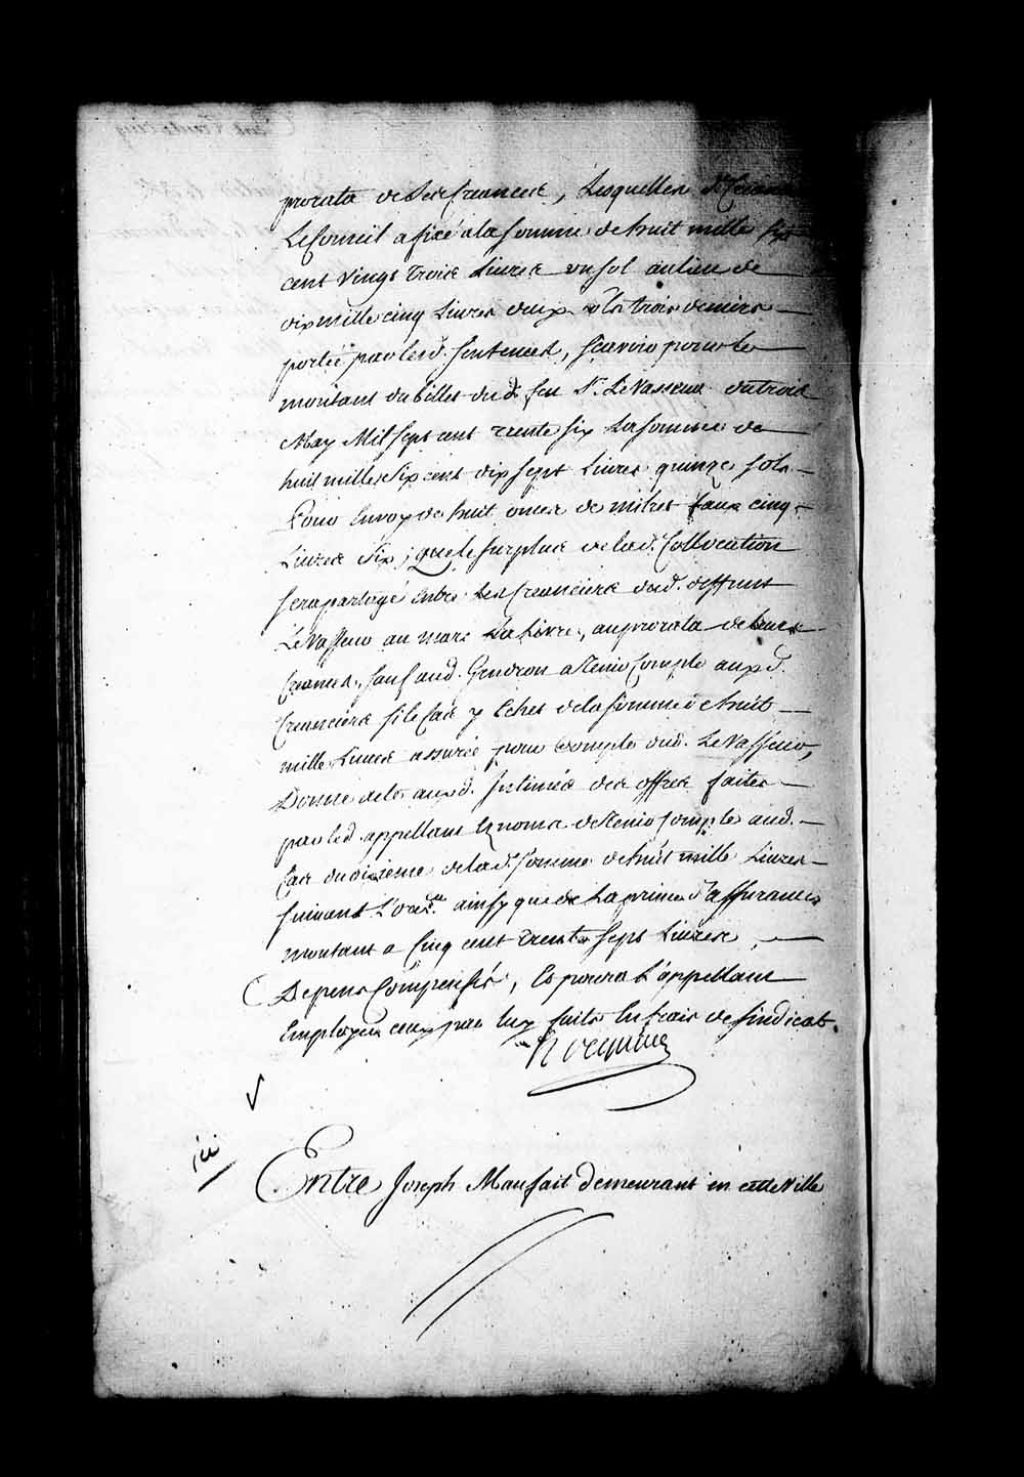 prorata de Ses Creances, Lesquelles d. Creances
Le Conseil a fixé a la somme de huit mille sept
cent vingt trois Livres un sol au lieu de
dix mille cinq Livres deux sols trois deniers
portée par lesd. sentences, scavoir pour le
montant du billet dud. feu Sr. Le Vasseur du trois
May Mil sept cent trente six La somme de
huit mille six cent dix sept Livres quinze sols
Pour Envoy de huit onces de
Livres six; que le surplus de lad. Collocation
sera partagé Entre Les Creanciers dud. deffunt
Le Vasseur au marc La Livre, au prorata de leurs
Creances, sauf aud. Gendron a tenir Compte auxd.
Creanciers si le Cas y Echet de la somme de huit
mille Livres assurée pour compte dud. Le Vasseur,
Donne acte auxd. Intimés des offres faites
par led. appellant Es noms de tenir Compte aud.
Cas du dixième de lad. somme de huit mille Livres
suivant L'ordce. ainsy que de La prime d'assurance
montant a Cinq cent trente sept Livres,
Depens Compensés, Et poura L'appellant
Employer ceux par luy faits En frais de sindicat.
Hocquart
ici
Entre Joseph Maufait Demeurant en cette Ville